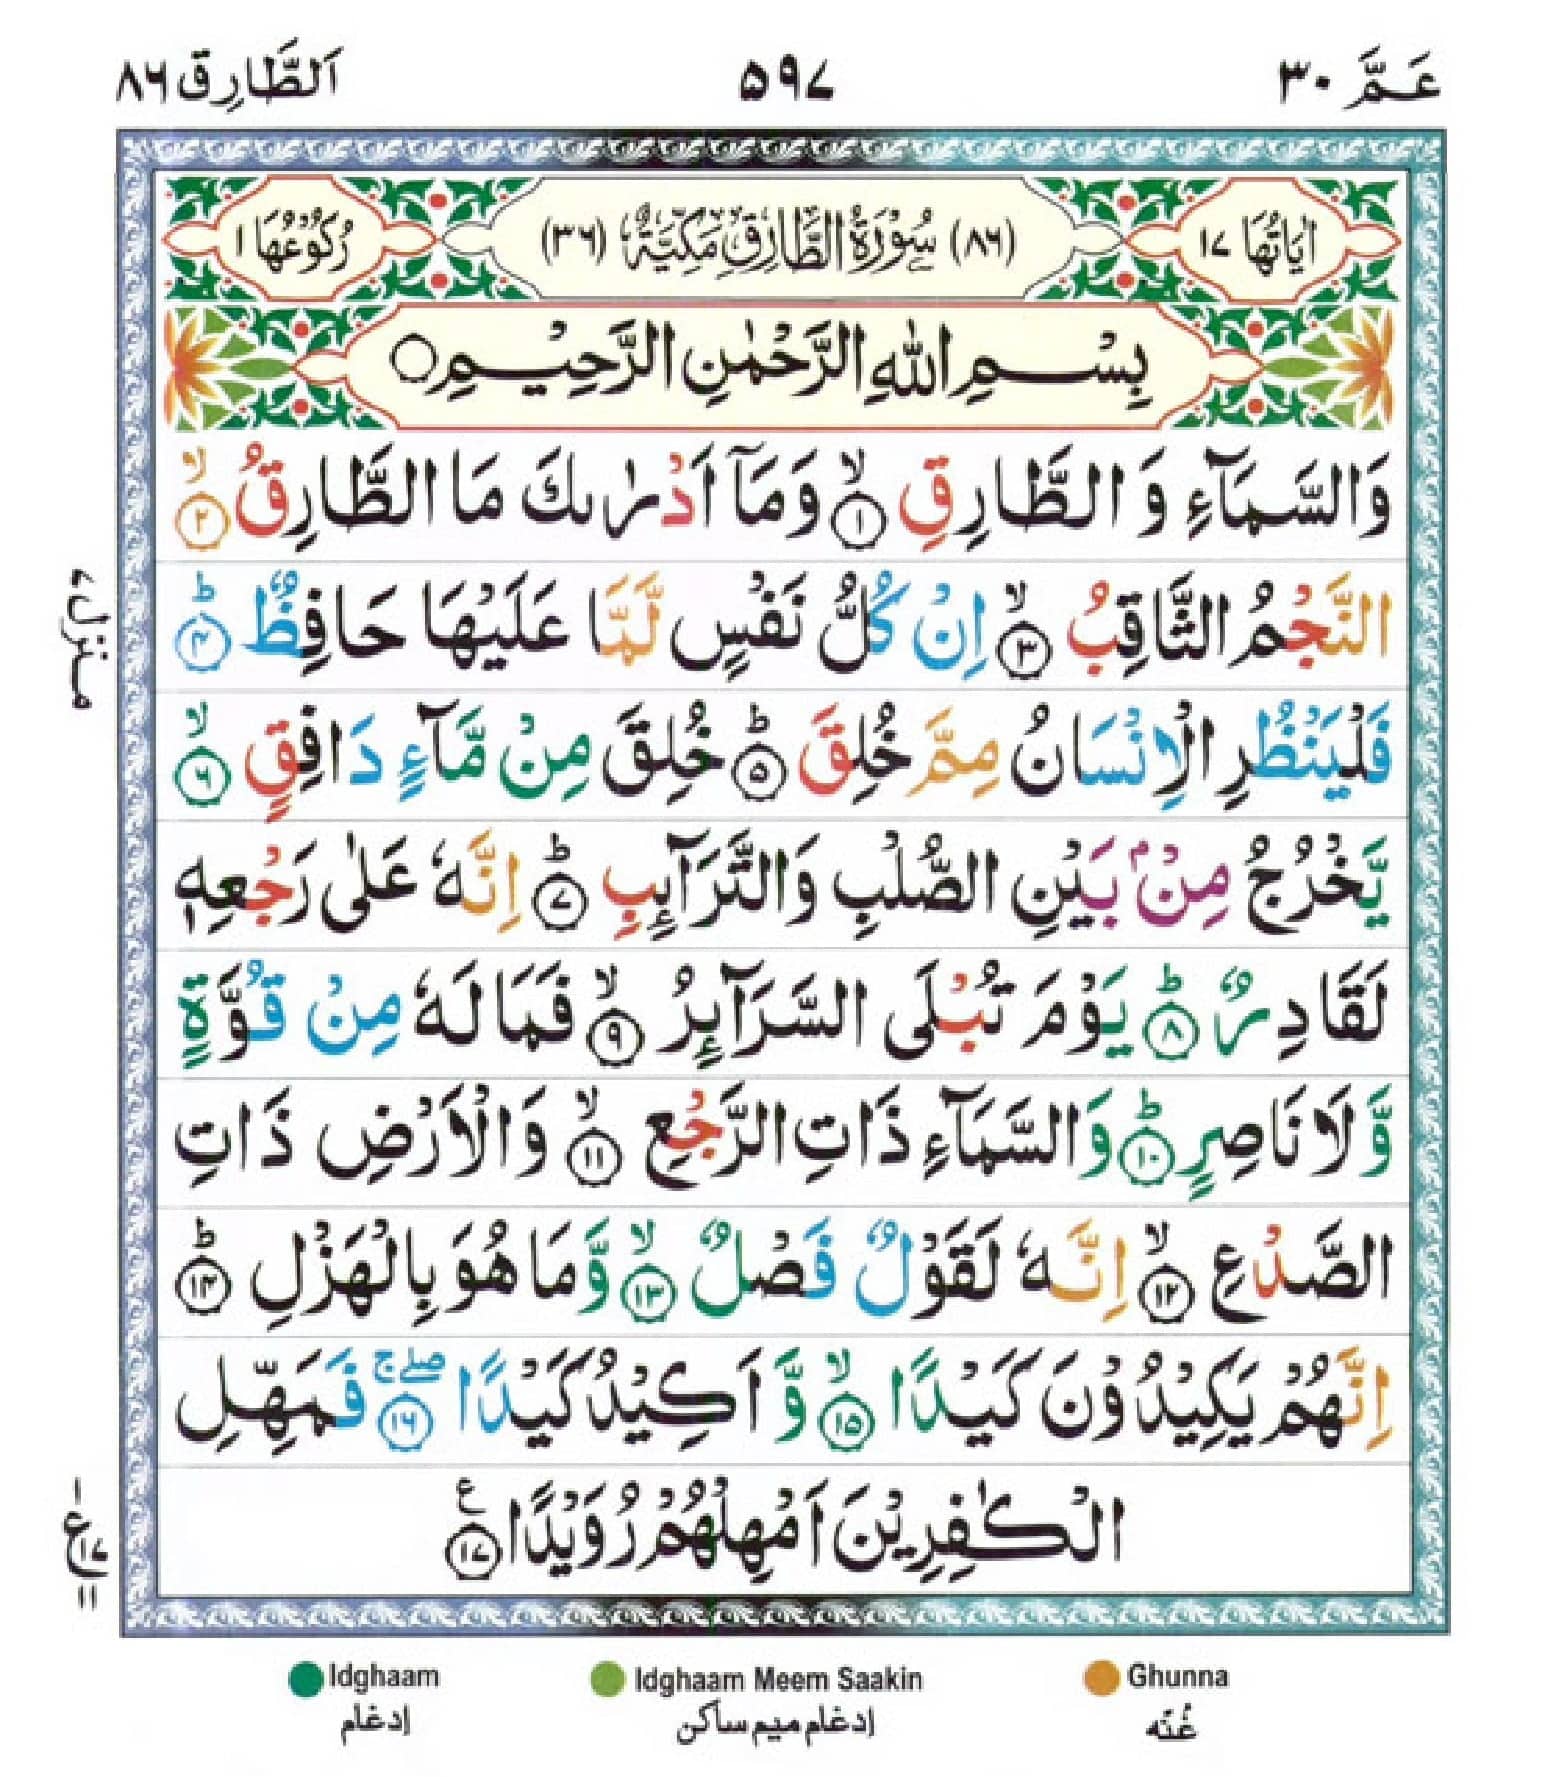 عَمَّ ٣٠
٥٩٧
اَلطَّارِق ٨٦
اٰيَاتُهَا ١٧
(٨٦) سُوْرَةُ الطَّارِقِ مَكِّيَّةٌ (٣٦)
رُكُوْعُهَا ١
بِسْمِ اللّٰهِ الرَّحْمٰنِ الرَّحِيْمِ ○
وَالسَّمَآءِ وَ الطَّارِقِ ۙ﴿١﴾ وَمَآ اَدْرٰىكَ مَا الطَّارِقُ ۙ﴿٢﴾
النَّجْمُ الثَّاقِبُ ۙ﴿٣﴾ اِنْ كُلُّ نَفْسٍ لَّمَّا عَلَيْهَا حَافِظٌ ؕ﴿٤﴾
فَلْيَنْظُرِ الْاِنْسَانُ مِمَّ خُلِقَ ؕ﴿٥﴾ خُلِقَ مِنْ مَّآءٍ دَافِقٍ ۙ﴿٦﴾
يَّخْرُجُ مِنْۢ بَيْنِ الصُّلْبِ وَالتَّرَآئِبِ ؕ﴿٧﴾ اِنَّهٗ عَلٰى رَجْعِهٖ
لَقَادِرٌ ؕ﴿٨﴾ يَوْمَ تُبْلَى السَّرَآئِرُ ۙ﴿٩﴾ فَمَا لَهٗ مِنْ قُوَّةٍ
وَّ لَا نَاصِرٍ ؕ﴿١٠﴾ وَالسَّمَآءِ ذَاتِ الرَّجْعِ ۙ﴿١١﴾ وَالْاَرْضِ ذَاتِ
الصَّدْعِ ۙ﴿١٢﴾ اِنَّهٗ لَقَوْلٌ فَصْلٌ ۙ﴿١٣﴾ وَّمَا هُوَ بِالْهَزْلِ ؕ﴿١٤﴾
اِنَّهُمْ يَكِيْدُوْنَ كَيْدًا ۙ﴿١٥﴾ وَّ اَكِيْدُ كَيْدًا ۖۚ﴿١٦﴾ فَمَهِّلِ
الْكٰفِرِيْنَ اَمْهِلْهُمْ رُوَيْدًا ﴿١٧﴾ ع
منزل ٧
١
ع ١٧
١١
Idghaam
إدغام
Idghaam Meem Saakin
إدغام ميم ساكن
Ghunna
غُنّه